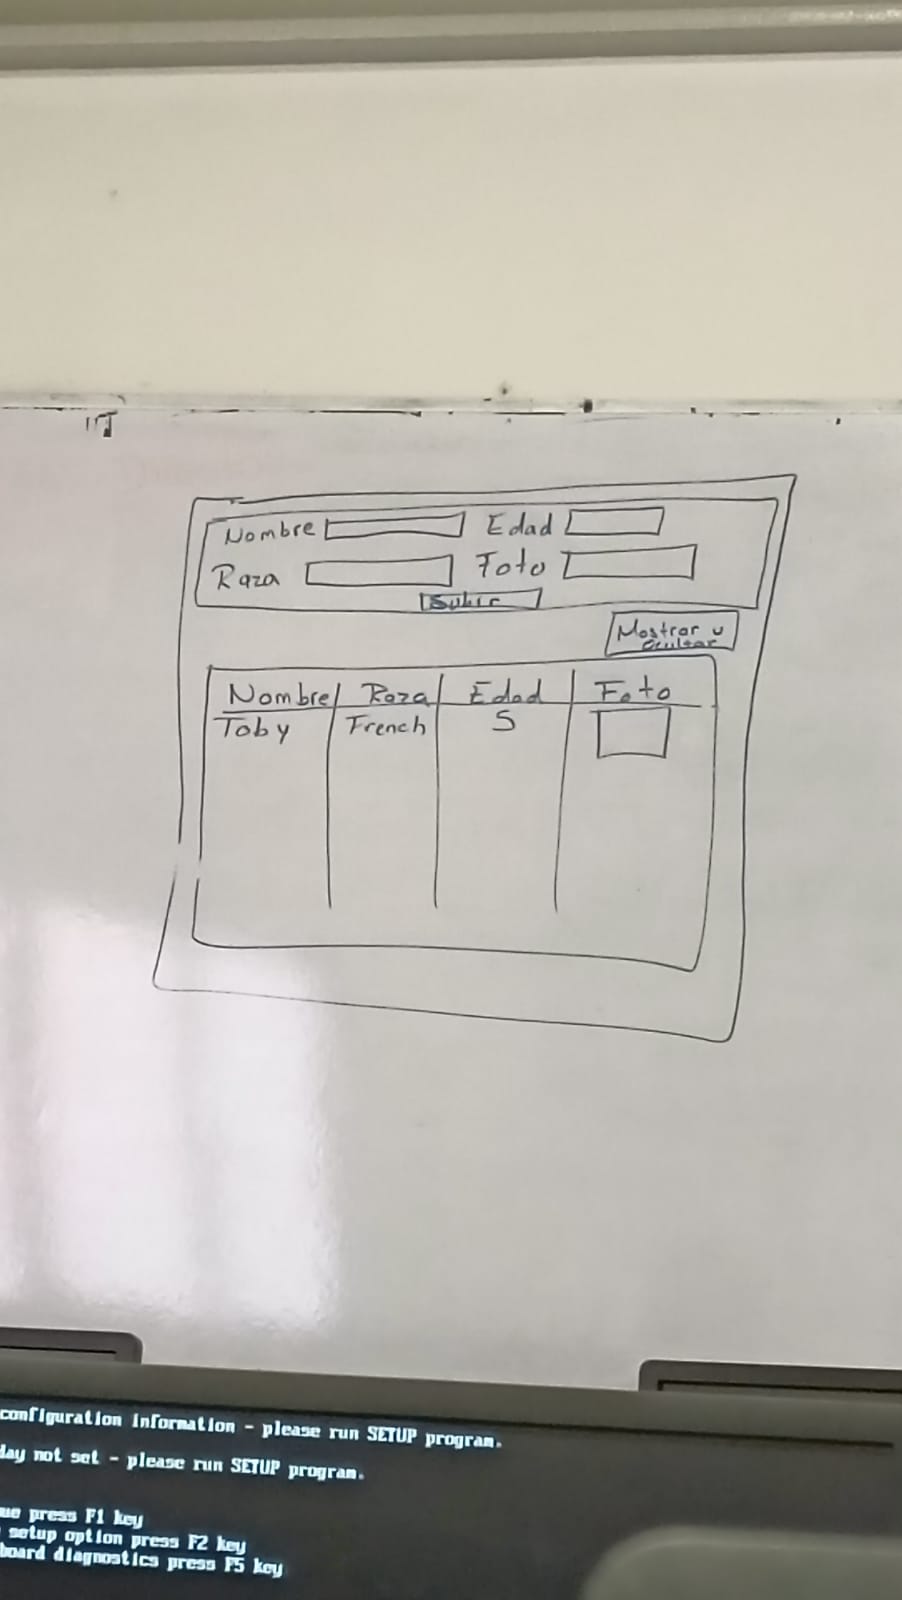 Nombre Edad
Raza Foto
Subir
Mostrar u
ocultar
Nombre Raza Edad Foto
Toby French 5
configuration information - please run SETUP program.
day not set - please run SETUP program.
ue press F1 key
setup option press F2 key
board diagnostics press F5 key